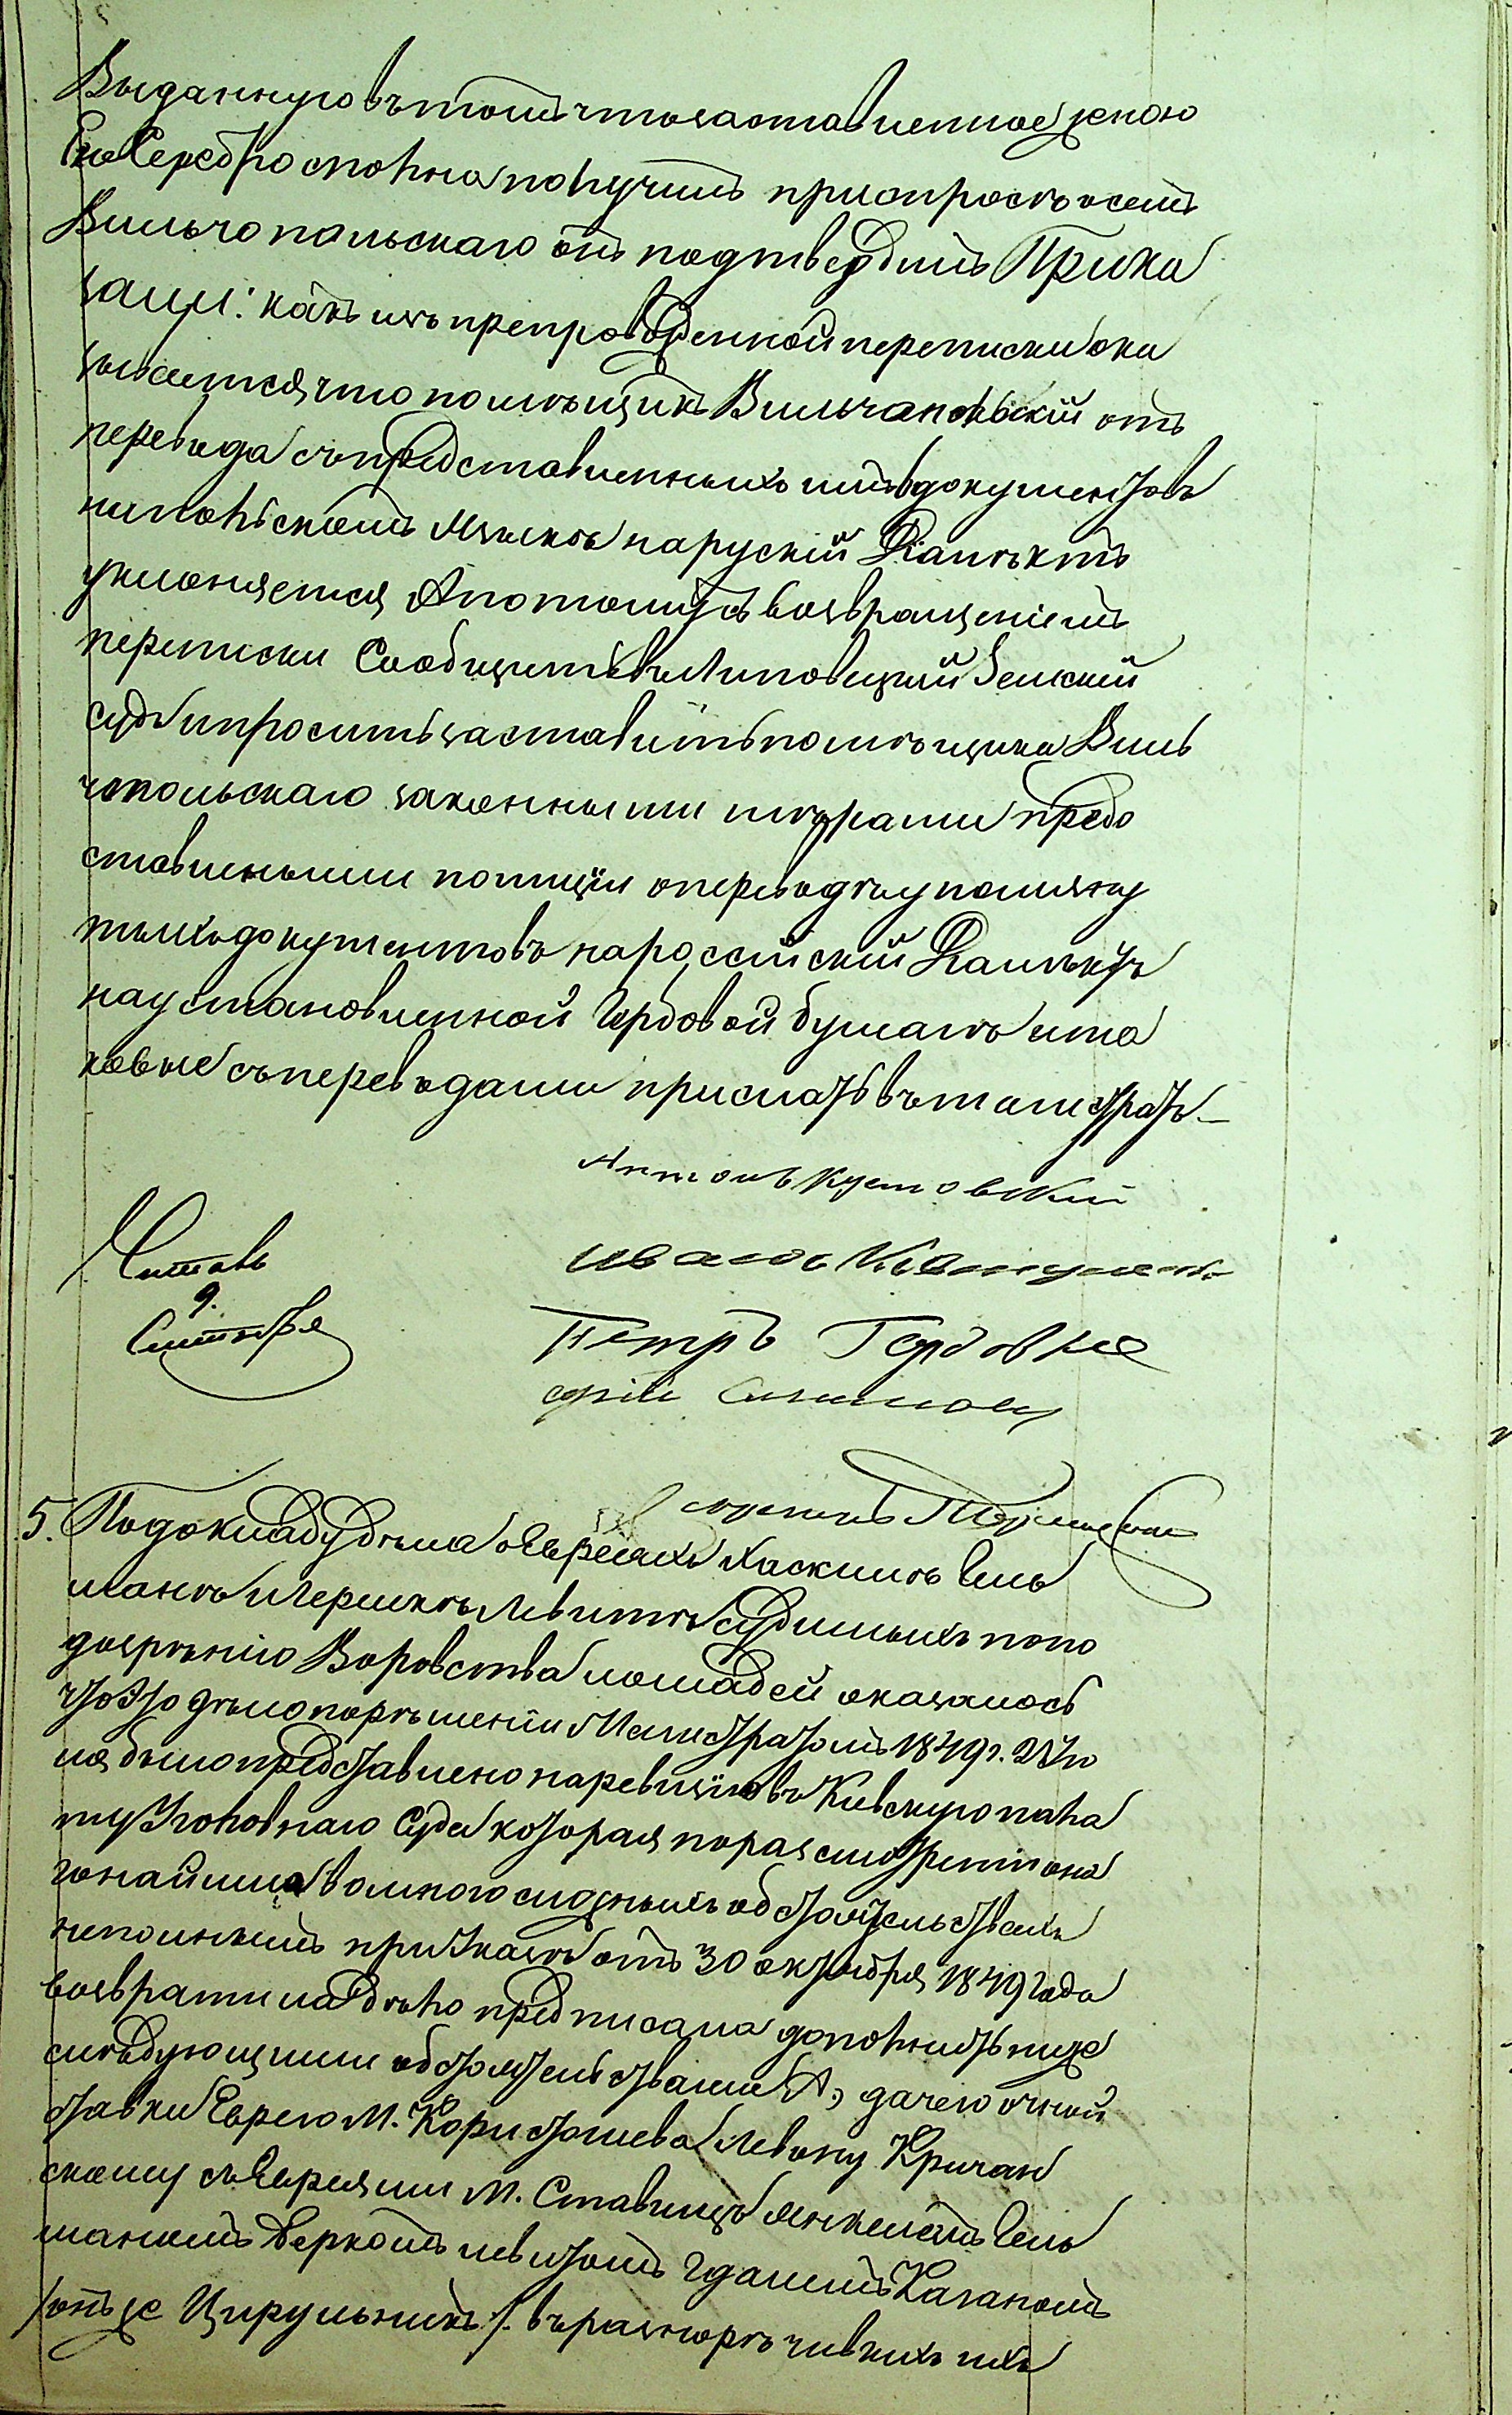 Выданную въ томъ что заставленное женою
Его Серебро сполна получилъ при опросѣ о семъ
Вильчопольскаго онъ подтвердилъ Прика
зали: какъ изъ препровожденной переписки ока
зывается что помѣщикъ Вильчапольскій отъ
перевода съ представленныхъ имъ документовъ
на польскомъ Языкѣ на рускій Діалектъ
уклоняется А потому съ возвращеніемъ
переписки Сообщить въ Липовецкій Земскій
судъ и просить заставить помѣщика Виль
чопольскаго законными мѣрами предо
ставленными полиціи о переводѣ упомяну
тыхъ документовъ на россійскій Діалектъ
на установленной Гербовой бумагѣ и та
ковые съ переводами прислать въ магистратъ –
Антонъ Кутовскій
Иванъ
Петръ
Читавъ
9.
Сентября
5. По докладу дѣла о Евреяхъ Хаскилѣ Гель
манѣ и Гершкѣ Левитѣ судимыхъ по по
дозрѣнію Воровства лошадей оказалось
что это дѣло по рѣшеніи Магистратомъ 1849 г.
ля было представлено на ревизію въ Кіевскую пала
ту Уголовнаго Суда которая по разсмотреніи она
го найшла во многомъ обстоятельствахъ
неполнымъ при Указѣ отъ 30 октября 1849 года
возвратила дѣло предписала дополнить ниже
слѣдующими обстоятельствами А, дачею очной
ставки Еврею М. Користошева Левону Кричан
скому съ Евреями М. Ставищъ Янкелемъ Гель
маномъ Беркомъ Левитомъ Гдалемъ Каганомъ
/онъ же Цирульникъ/. въ разнорѣчивыхъ ихъ